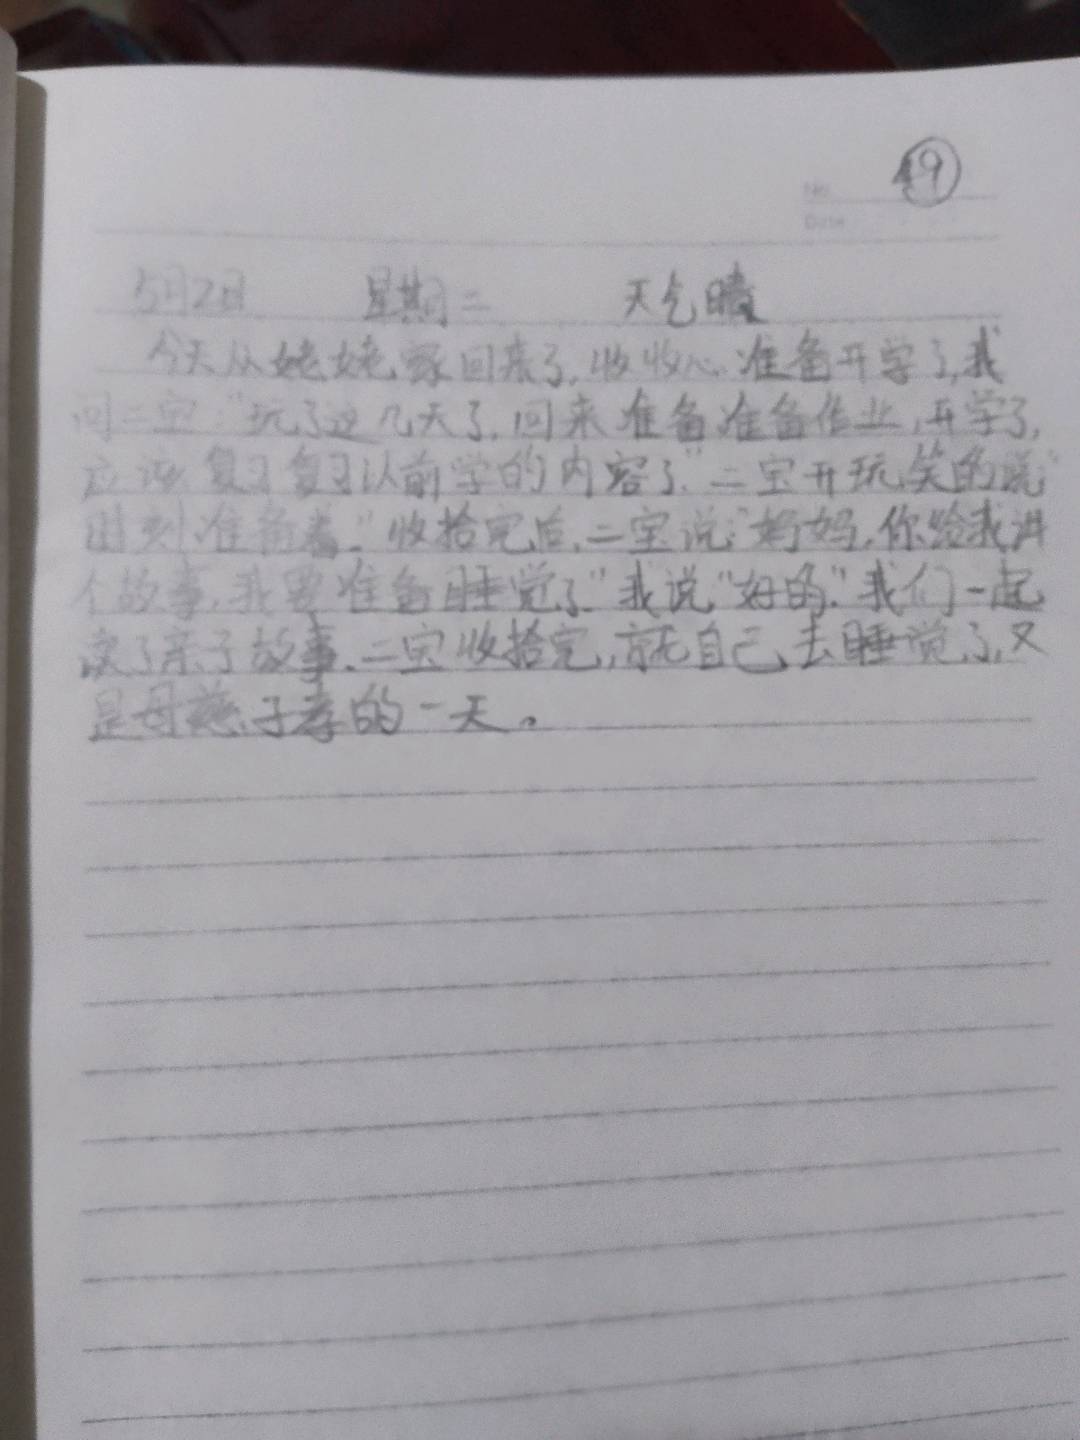 ⑲
No.
Date
5月2日 星期二 天气晴
今天从姥姥家回来了,收收心,准备开学了,我
问二宝:"玩了这几天了,回来准备准备作业,开学了,
应该复习复习以前学的内容了"二宝开玩笑的说"
时刻准备着。"收拾完后,二宝说:"妈妈,你给我讲
个故事,我要准备睡觉了"我说"好的."我们一起
读了亲子故事.二宝收拾完,就自己去睡觉了,又
是母慈子孝的一天。